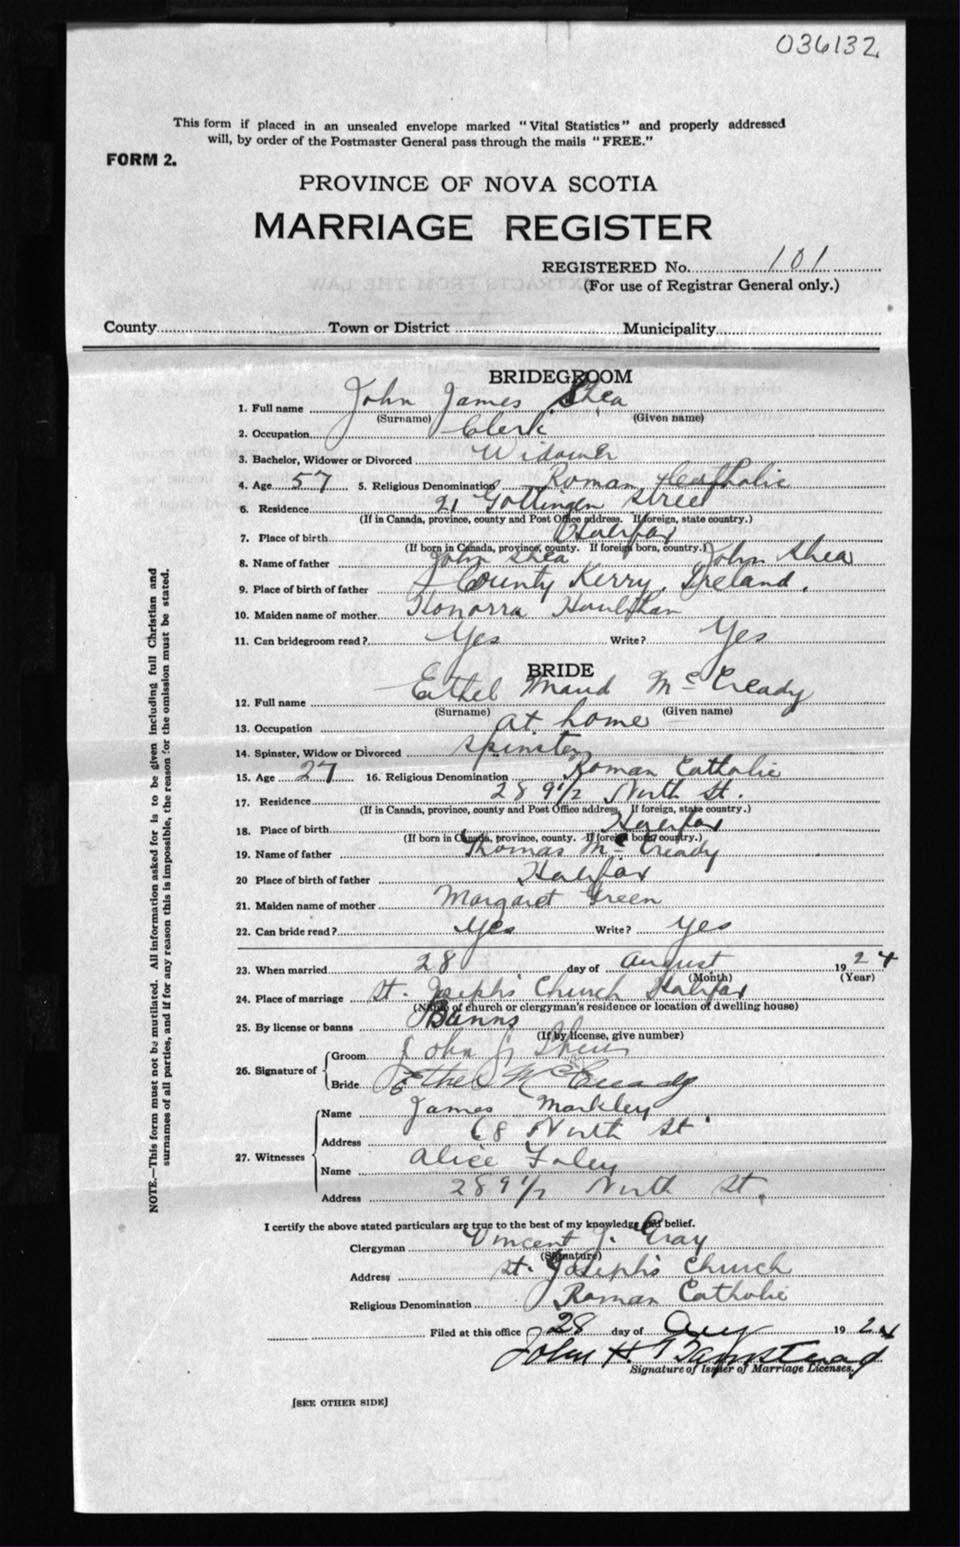 036132
This form if placed in an unsealed envelope marked "Vital Statistics" and properly addressed
will, by order of the Postmaster General pass through the mails "FREE."
FORM 2.
PROVINCE OF NOVA SCOTIA
MARRIAGE REGISTER
REGISTERED No. 101
(For use of Registrar General only.)
County Town or District Municipality
BRIDEGROOM
1. Full name John James Shea
(Surname) (Given name)
2. Occupation Clerk
3. Bachelor, Widower or Divorced Widower
4. Age 57 5. Religious Denomination Roman Catholic
6. Residence 21 Gottingen Street
(If in Canada, province, county and Post Office address. If foreign, state country.)
7. Place of birth Halifax
(If born in Canada, province, county. If foreign born, country.)
8. Name of father John Shea John Shea
9. Place of birth of father County Kerry, Ireland.
10. Maiden name of mother Honorra
11. Can bridegroom read? Yes Write? Yes
BRIDE
12. Full name Ethel Maud McCready
(Surname) (Given name)
13. Occupation at home
14. Spinster, Widow or Divorced Spinster
15. Age 27 16. Religious Denomination Roman Catholic
17. Residence 289½ North St.
(If in Canada, province, county and Post Office address. If foreign, state country.)
18. Place of birth Halifax
(If born in Canada, province, county. If foreign born, country.)
19. Name of father Thomas McCready
20 Place of birth of father Halifax
21. Maiden name of mother Margaret Green
22. Can bride read? Yes Write? Yes
23. When married 28 day of August 1924
(Month) (Year)
24. Place of marriage St. Joseph's Church Halifax
(Name of church or clergyman's residence or location of dwelling house)
25. By license or banns Banns
(If by license, give number)
26. Signature of Groom John J. Shea
Bride Ethel McCready
27. Witnesses Name James Markley
Address 68 North St.
Name Alice Foley
Address 289½ North St.
I certify the above stated particulars are true to the best of my knowledge and belief.
Clergyman Vincent J. Gray
(Signature)
Address St. Joseph's Church
Religious Denomination Roman Catholic
Filed at this office 28 day of Aug 1924
John H. Barnstead
Signature of Issuer of Marriage Licenses.
[SEE OTHER SIDE]
NOTE.—This form must not be mutilated. All information asked for is to be given including full Christian and
surnames of all parties, and if for any reason this is impossible, the reason for the omission must be stated.